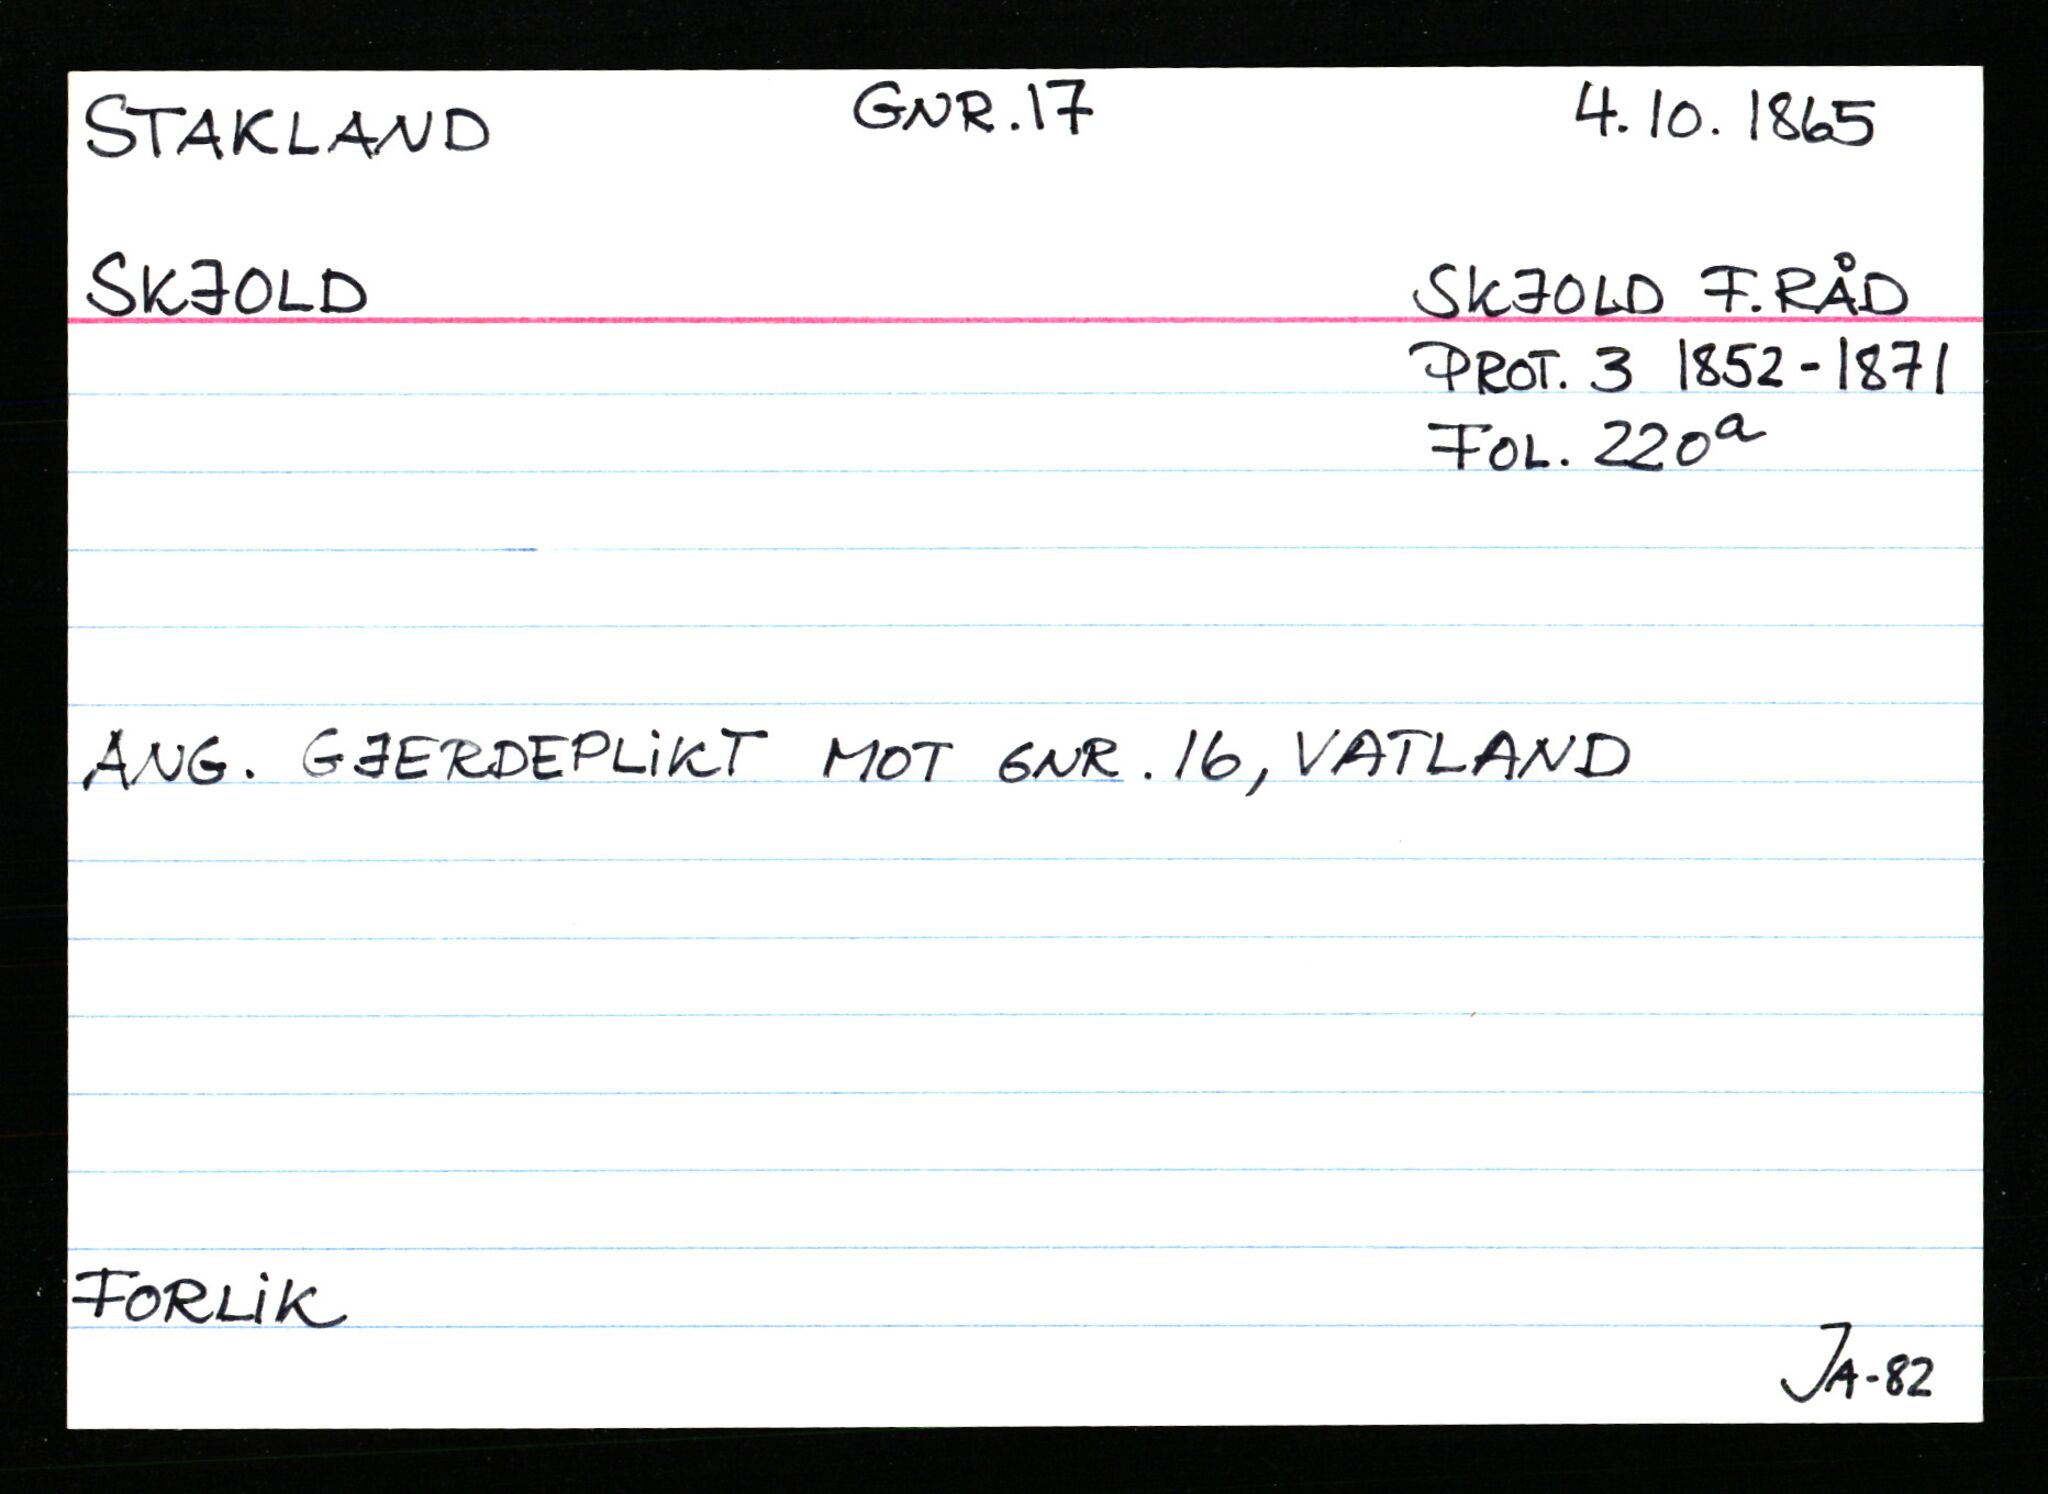 STAKLAND GNR. 17 4. 10. 1865
SKJOLD SKJOLD F. RÅD
PROT. 3 1852-1871
FOL. 220a
ANG. GJERDEPLiKT MOT GNR. 16, VATLAND
FORLiK
JA-82